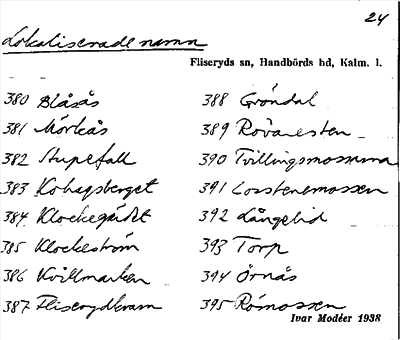 24
Lokaliserade namn
Fliseryds sn, Handbörds hd, Kalm. l.
380 Blåsås
381 Mörkås
382 Stupefall
383 Kohagsberget
384 Klockegärdet
385 Klockeström
386 Kvillmarken
387 Fliserydkvarn
388 Gröndal
389 Rövaresten
390 Tvillingsmossarna
391 Losstenemossen
392 Långelid
393 Torp
394 Örnås
395 Römossen
Ivar Modéer 1938